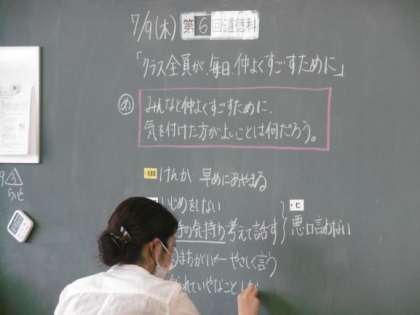 7/9(木) 第6回道徳科
「クラス全員が、毎日、仲よくすごすために」
みんなと仲よくすごすために、
気を付けた方がよいことは何だろう。
けんか 早めにあやまる
いじめをしない
の気持ち考えて話す
悪口言わない
まちがい← やさしく言う
れていやなことし